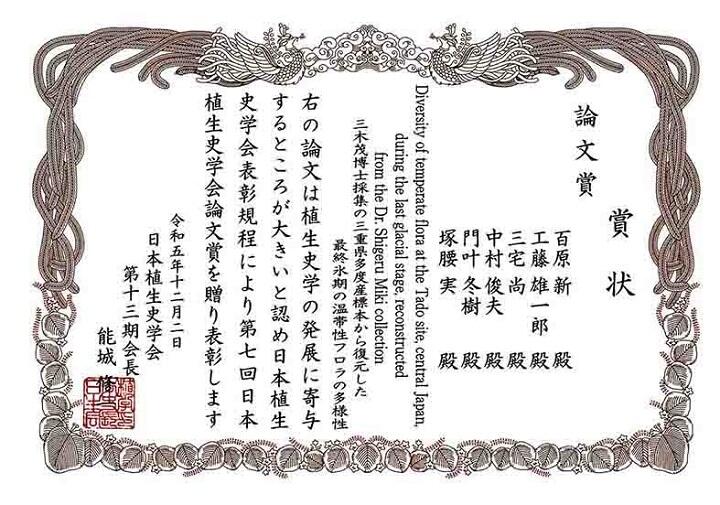 賞状
論文賞
百原 新 殿
工藤 雄一郎 殿
三宅 尚 殿
中村 俊夫 殿
門叶 冬樹 殿
塚腰 実 殿
Diversity of temperate flora at the Tado site, central Japan,
during the last glacial stage reconstructed
from the Dr. Shigeru Miki collection
三木茂博士採集の三重県多度産標本から復元した
最終氷期の温帯性フロラの多様性
右の論文は植生史学の発展に寄与
するところが大きいと認め日本植生
史学会表彰規程により第七回日本
植生史学会論文賞を贈り表彰します
令和五年十二月二日
日本植生史学会
第十三期会長
能城 修一